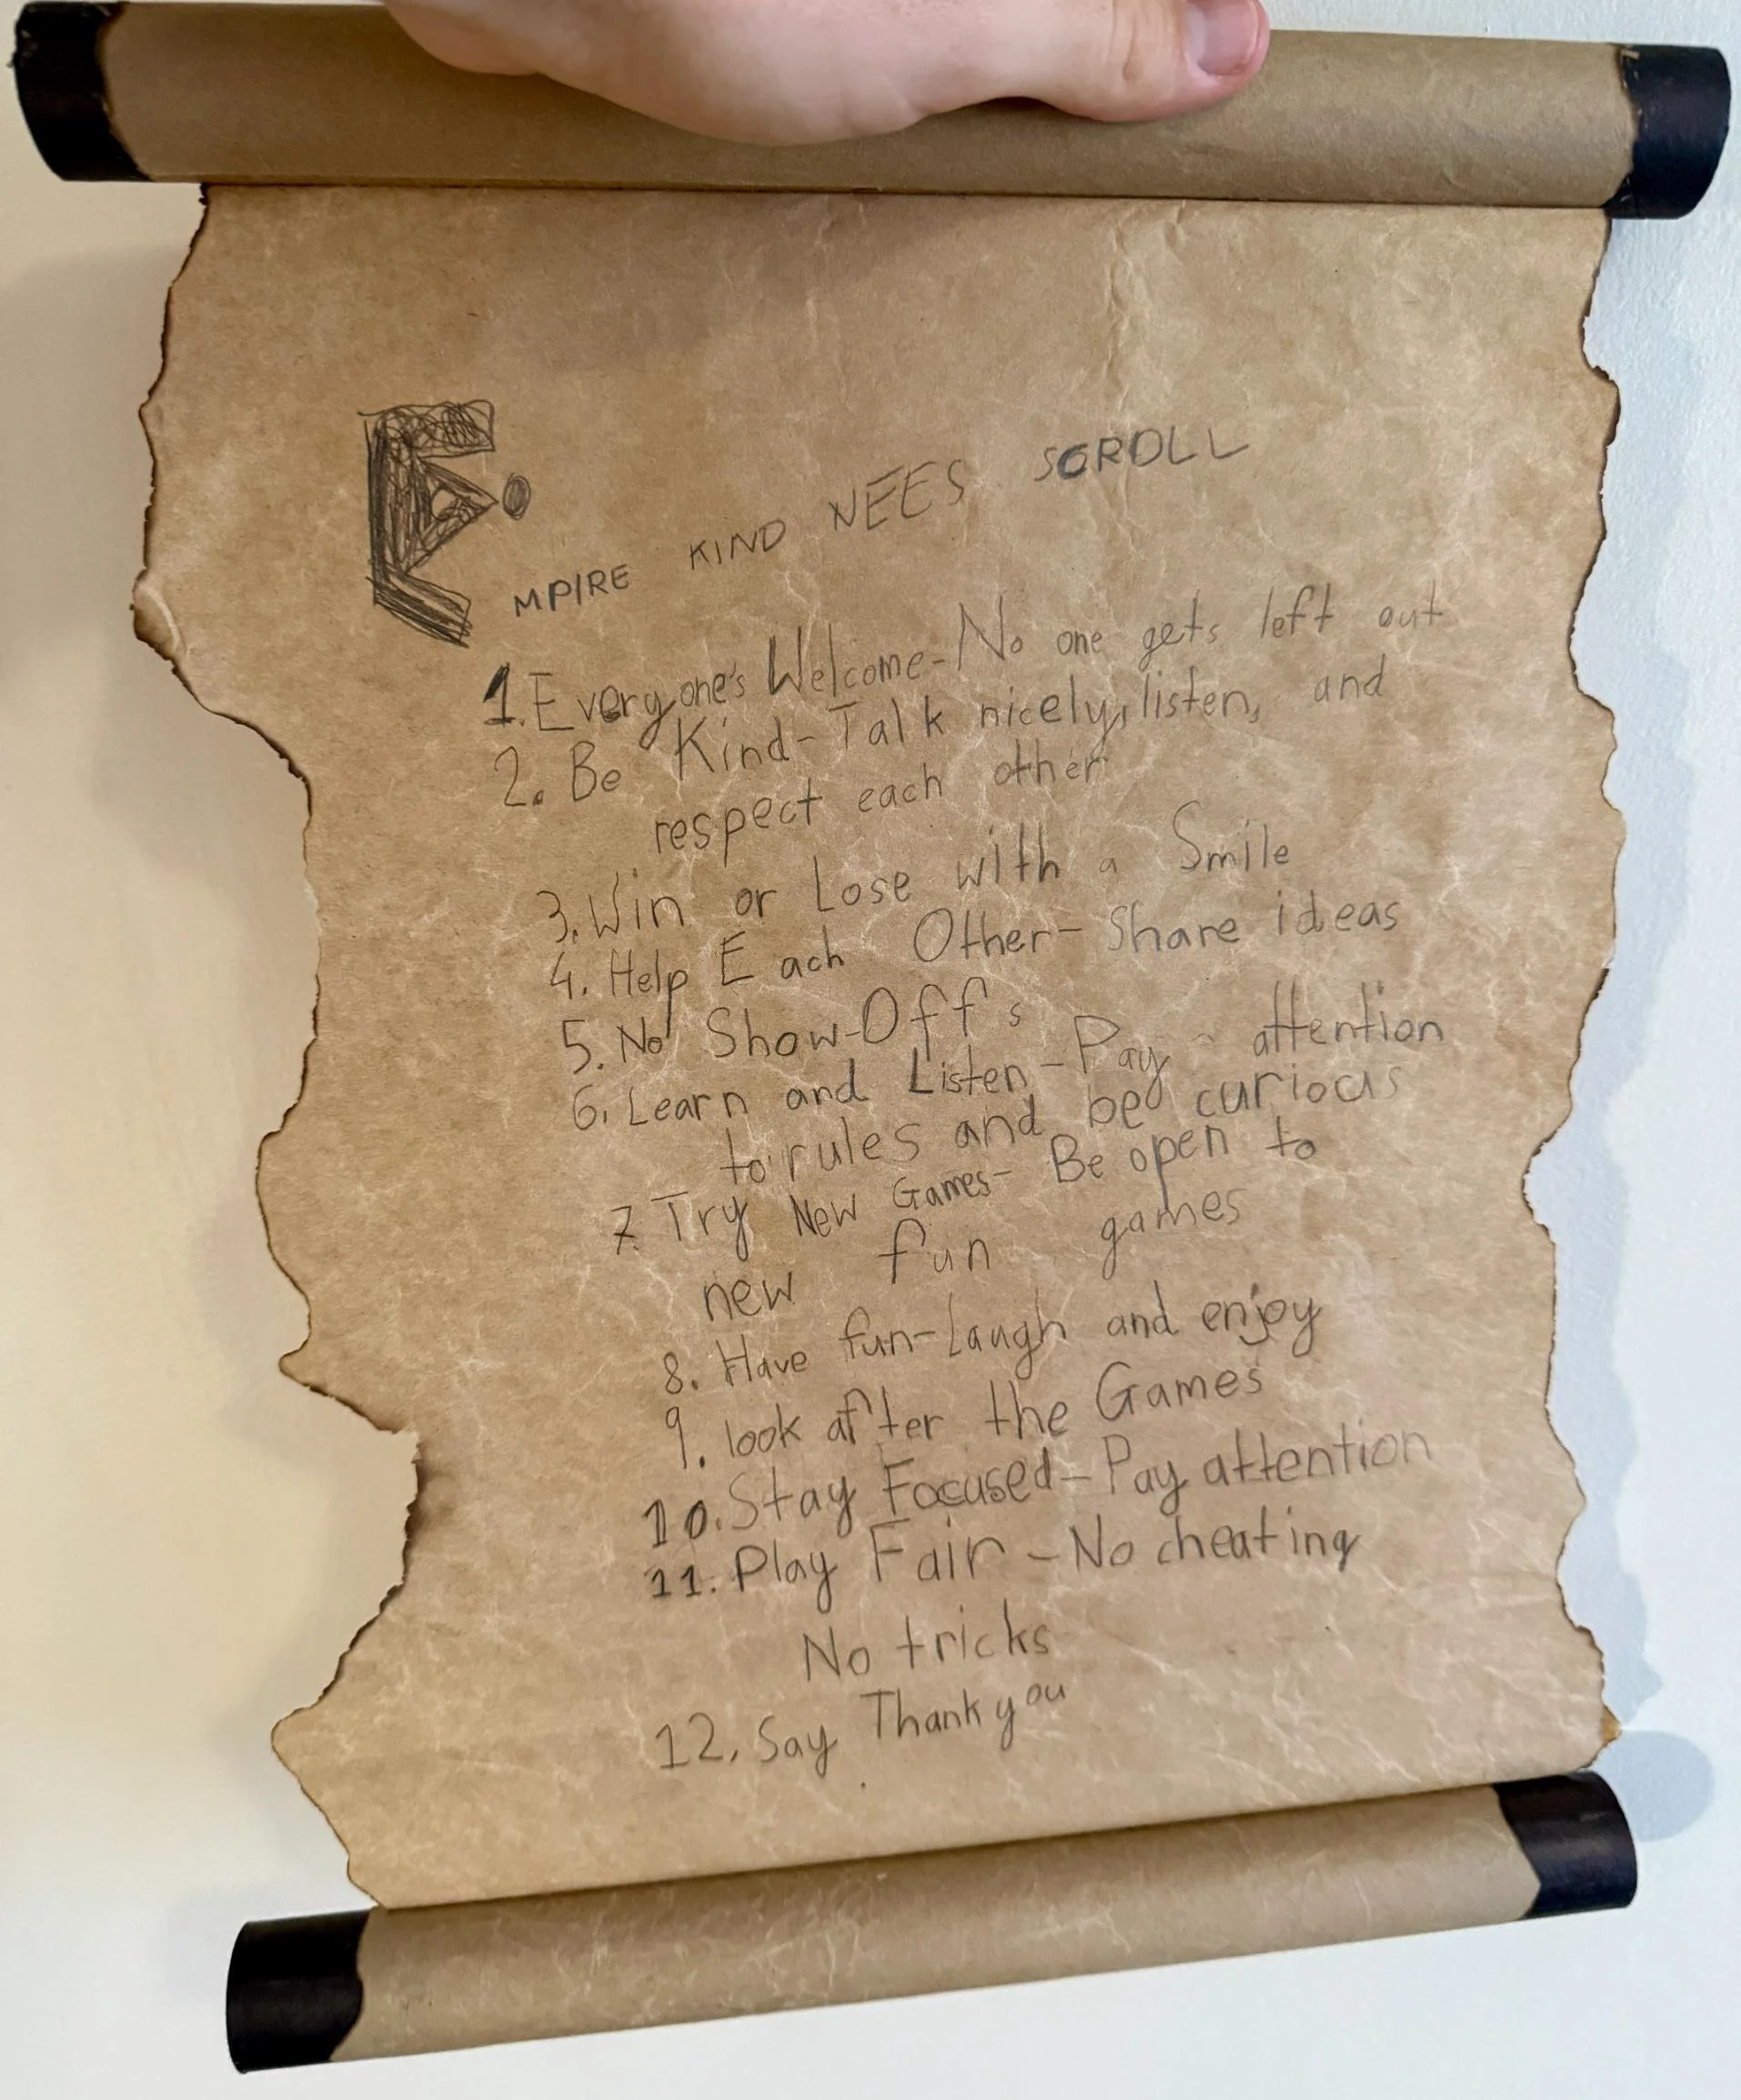 EMPIRE KIND NEES SCROLL
1. Everyone's Welcome-No one gets left out
2. Be Kind-Talk nicely, listen, and
respect each other
3. Win or Lose with a Smile
4. Help Each Other-Share ideas
5. No Show-Off's
6. Learn and Listen-Pay attention
to rules and be curious
7. Try New Games-Be open to
new fun games
8. Have fun-Laugh and enjoy
9. look after the Games
10. Stay Focused-Pay attention
11. Play Fair-No cheating
No tricks
12. Say Thank you